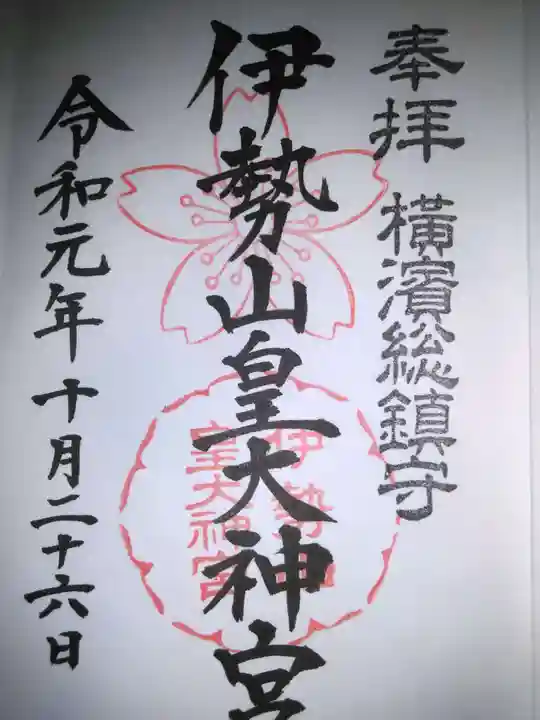 奉拝 橫濱総鎮守
伊勢山皇大神宮
伊勢山
皇大神宮
令和元年十月二十六日